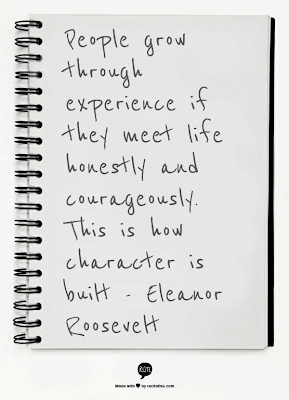 People grow
through
experience if
they meet life
honestly and
courageously.
This is how
character is
built - Eleanor
Roosevelt
RECITE
Made with ♥ by recitethis.com